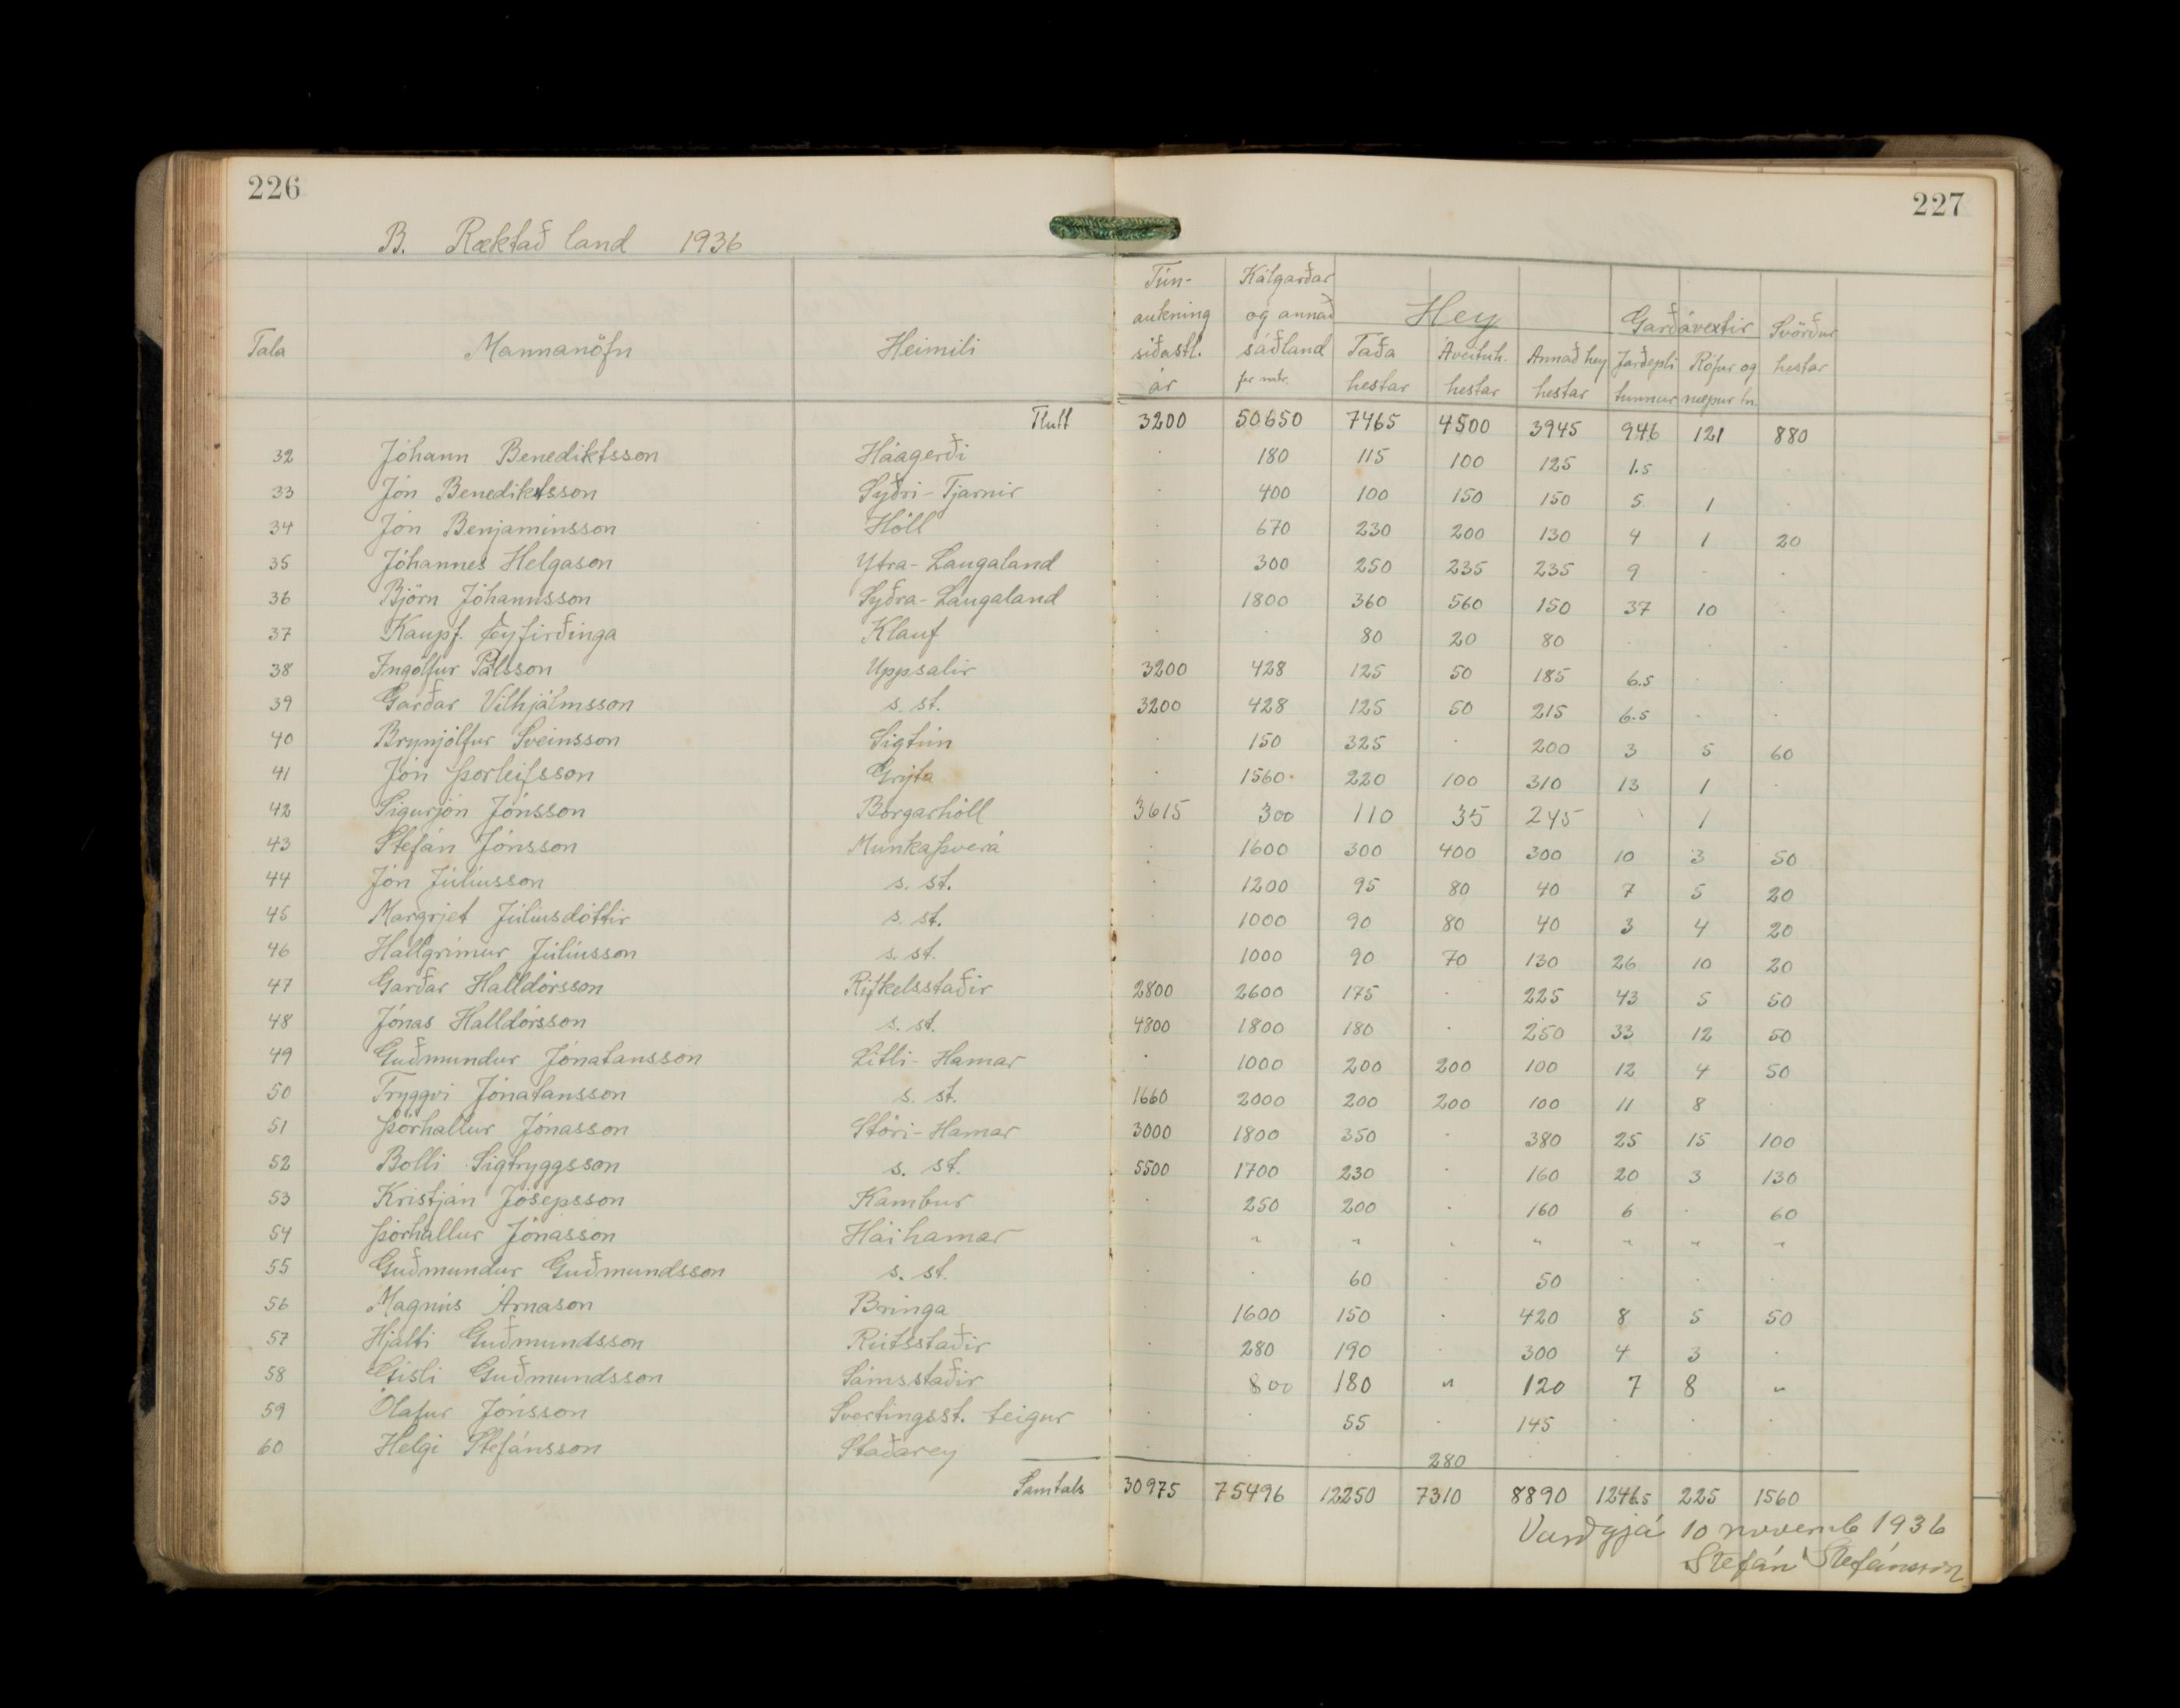 226
227
B. Ræktað land 1936
Tala Mannanöfn Heimili Tún-aukning síðastl. ár Kálgarðar og annað sáðland fer. mtr. Hey Taða hestar Áveituh. hestar Annað hey hestar Garðávextir Jarðepli tunnur Rófur og næpur tn. Svörður hestar
Flutt 3200 50650 7465 4500 3945 946 121 880
32 Jóhann Benediktsson Háagerði . 180 115 100 125 1.5 . .
33 Jón Benediktsson Syðri-Tjarnir . 400 100 150 150 5 1 .
34 Jón Benjamínsson Hóll . 670 230 200 130 4 1 20
35 Jóhannes Helgason Ytra-Laugaland . 300 250 235 235 9 . .
36 Björn Jóhannsson Syðra-Laugaland . 1800 360 560 150 37 10 .
37 Kaupf. Eyfirðinga Klauf . . 80 20 80 . . .
38 Ingólfur Pálsson Uppsalir 3200 428 125 50 185 6.5 . .
39 Garðar Vilhjálmsson s. st. 3200 428 125 50 215 6.5 . .
40 Brynjólfur Sveinsson Sigtún . 150 325 . 200 3 5 60
41 Jón Þorleifsson Grýta . 1560 220 100 310 13 1 .
42 Sigurjón Jónsson Borgarhóll 3615 300 110 35 245 1
43 Stefán Jónsson Munkaþverá . 1600 300 400 300 10 3 50
44 Jón Júlíusson s. st. . 1200 95 80 40 7 5 20
45 Margrjet Júlíusdóttir s. st. 1000 90 80 40 3 4 20
46 Hallgrímur Júlíusson s. st. 1000 90 70 130 26 10 20
47 Garðar Halldórsson Rifkelsstaðir 2800 2600 175 . 225 43 5 50
48 Jónas Halldórsson s. st. 4800 1800 180 . 250 33 12 50
49 Guðmundur Jónatansson Litli-Hamar . 1000 200 200 100 12 4 50
50 Tryggvi Jónatansson s. st. 1660 2000 200 200 100 11 8 .
51 Þórhallur Jónasson Stóri-Hamar 3000 1800 350 . 380 25 15 100
52 Bolli Sigtryggsson s. st. 5500 1700 230 . 160 20 3 130
53 Kristján Jósepsson Kambur . 250 200 . 160 6 . 60
54 Þórhallur Jónasson Háihamar " " . " " " "
55 Guðmundur Guðmundsson s. st. . . 60 . 50 . . .
56 Magnús Árnason Bringa 1600 150 . 420 8 5 50
57 Hjalti Guðmundsson Rútsstaðir . 280 190 . 300 4 3 .
58 Gísli Guðmundsson Sámsstaðir 800 180 " 120 7 8 "
59 Ólafur Jónsson Svertingsst. teigur . . 55 . 145 . . .
60 Helgi Stefánsson Staðarey . . . 280 . . . .
Samtals 30975 75496 12250 7310 8890 1246.5 225 1560
Varðgjá 10 novemb 1936
Stefán Stefánsson